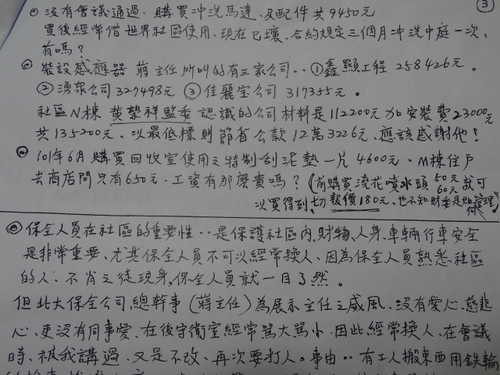 ③
⊙ 沒有會議通過. 購買沖洗馬達. 及配件共9450元
買後經常借世界社區使用. 現在已壞. 合約規定三個月冲洗中庭一次,
有嗎?
⊙ 裝設感應器 蔣主任所叫的有三家公司.. ①鑫顥工程 258426元.
② 公司 327498元 ③ 佳麗室公司 317355元.
社區N棟 黃 祥監委 認識的公司材料是112200元加安裝費23000元
共135200元. 以最低標則節省公款12萬3226元. 應該感謝他!
⊙ 101年6月購買回收室使用之特制刮泥墊一片4600元. M棟住戶
去商店問只有650元. 工資有那麼貴嗎? (前購買澆花噴水頭 50元 60元就可
以買得到, 報價180元. 也不知財委是如 管理)
⊙ 保全人員在社區的重要性.. 是保護社區內. 財物. 人身. 車輛行車安全
是非常重要. 尤其保全人員不可以經常換人. 因為保全人員熟悉社區
的人. 不肖之徒現身, 保全人員就一目了然.
但北大保全公司. 總幹事 (蔣主任) 為展示主任之威風. 沒有愛心. 慈悲
心. 更沒有同事愛. 在後守衛室經常罵大罵小. 因此經常換人. 在會議
時. 被我講過. 又是不改. 再次要打人. 事由.. 有工人搬東西用鉄輪